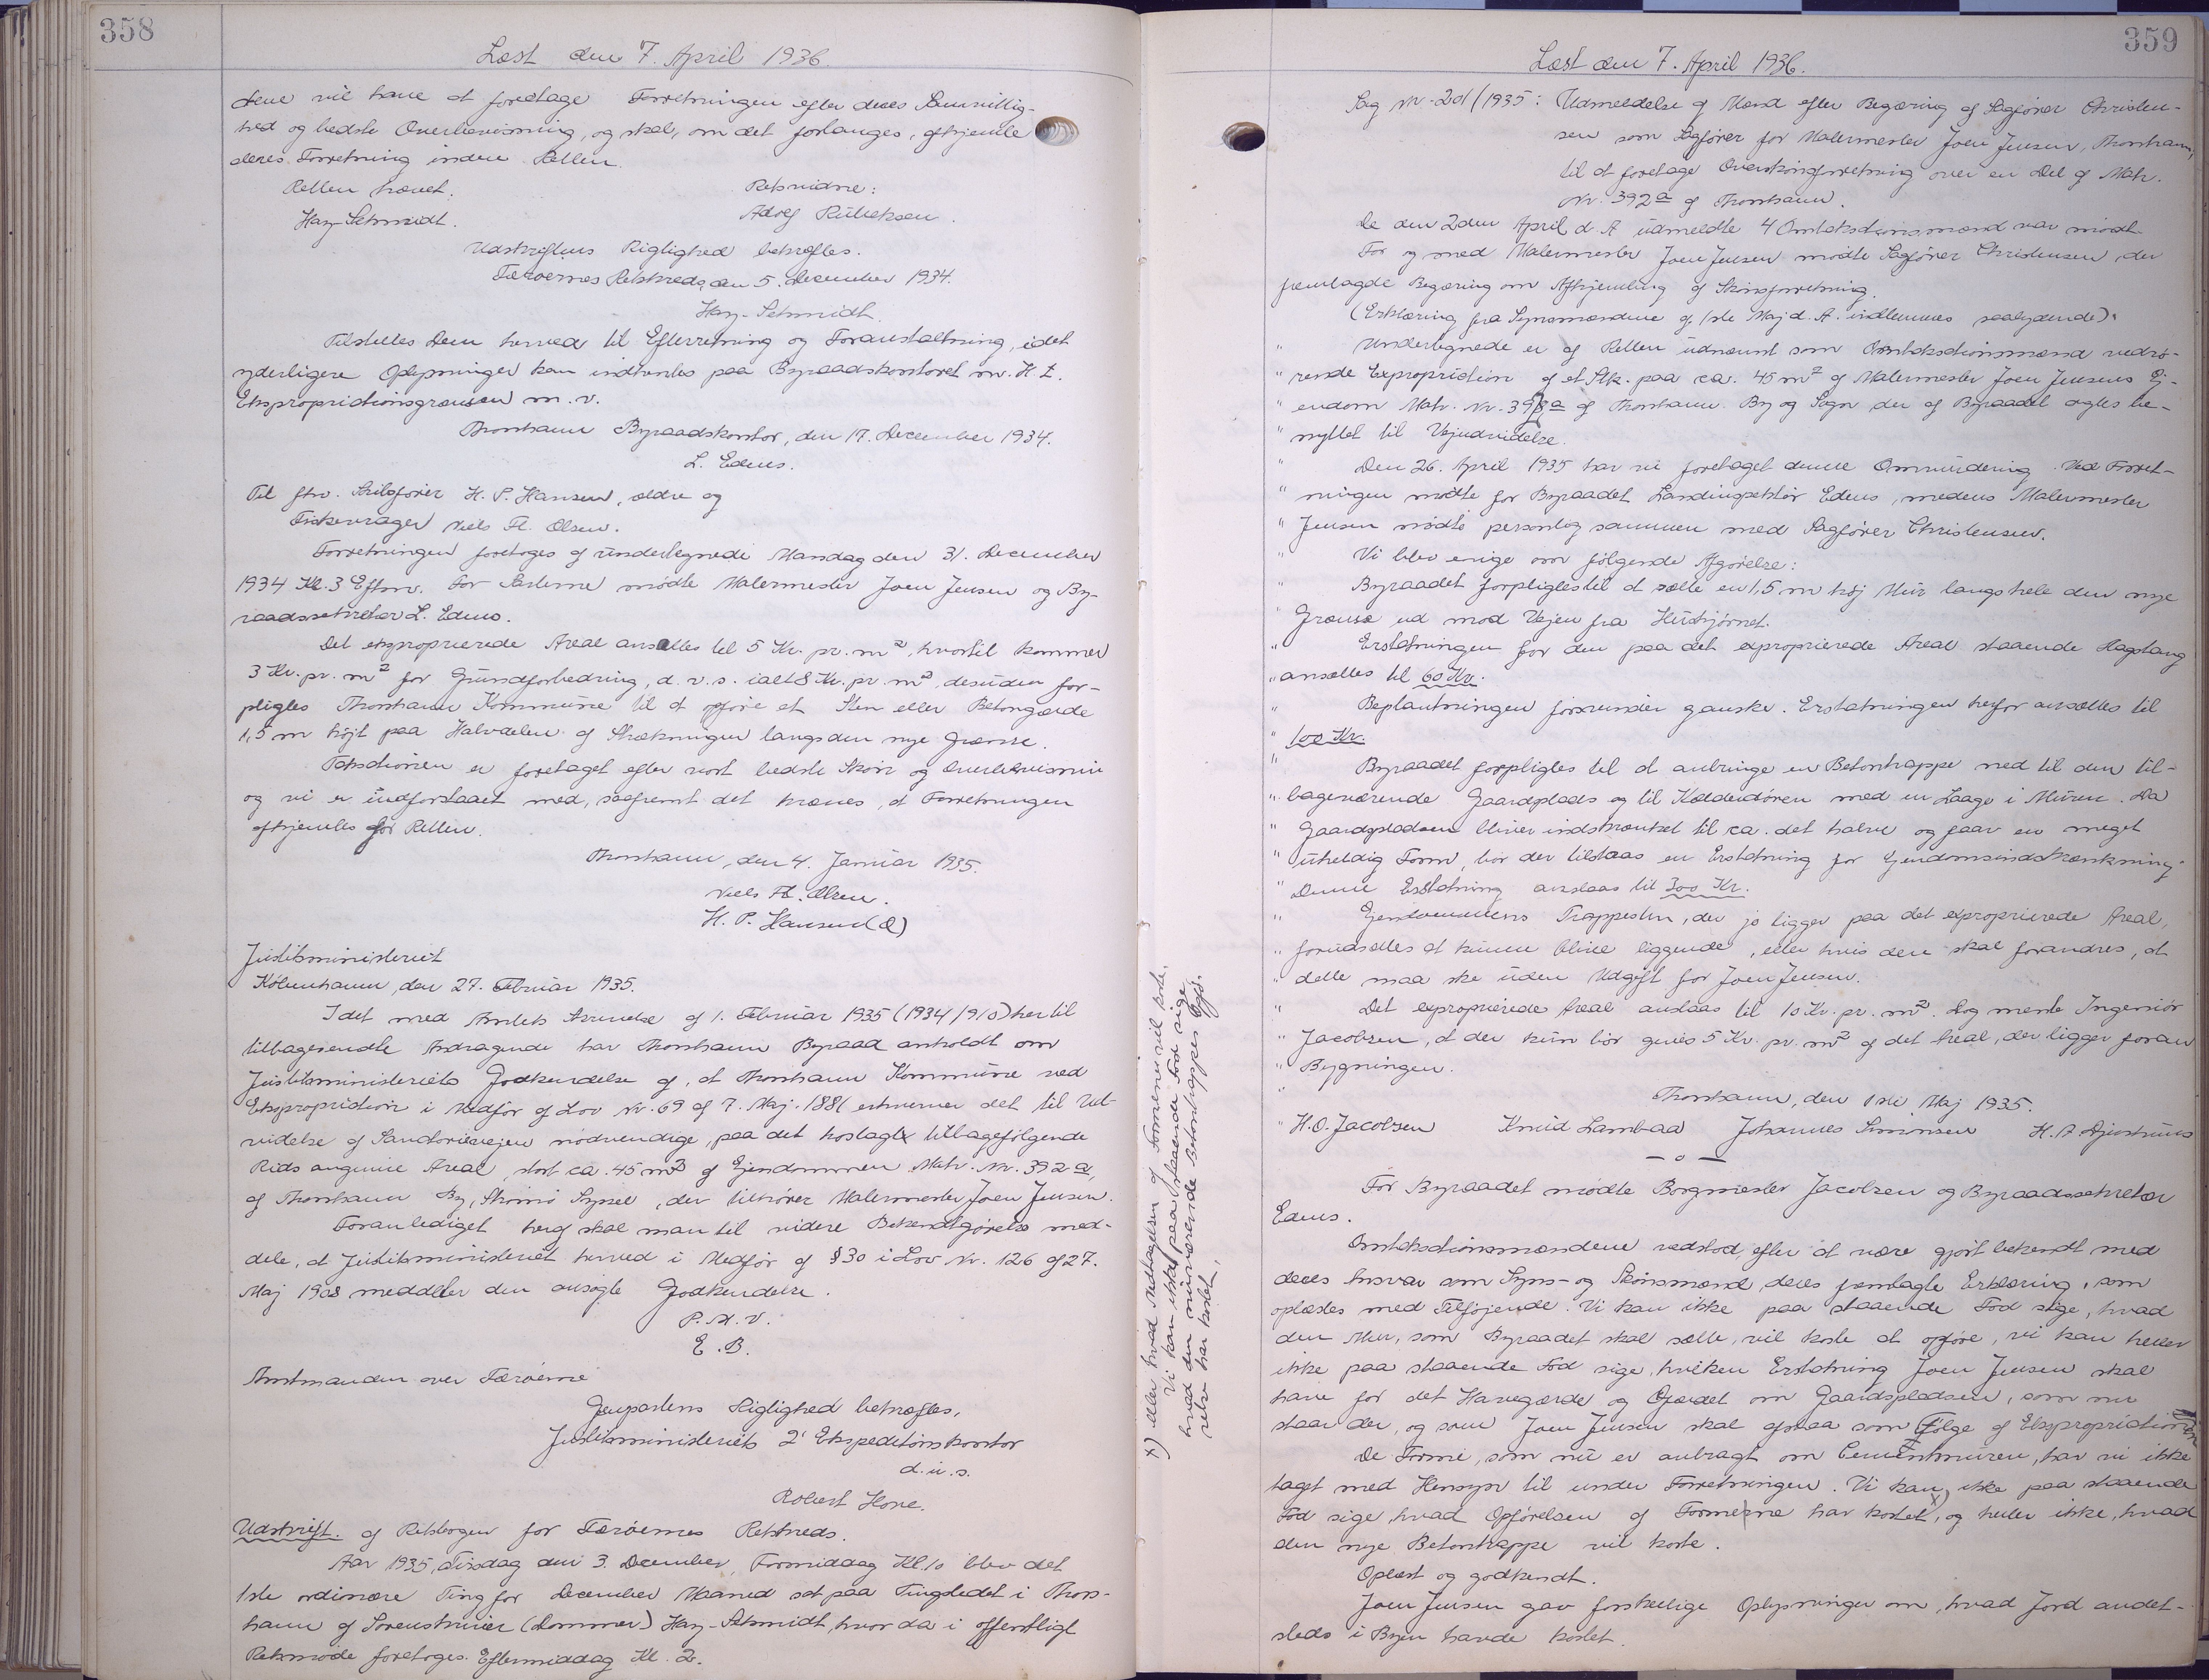 358
Læst den 7. April 1936.
dene vil have at foretage Forretningen efter deres Samvittig-
hed og bedste Overbevisning, og skal, om det forlanges, afhjemle
deres Forretning inden Retten.
Retten hævet.
Retsvidne:
Hay-Schmidt.
Adolf Rübeksen.
Udskriftens Rigtighed bekræftes.
Færøernes Retskreds, den 5. December 1934.
Hay-Schmidt.
Tilstilles Dem herved til Efterretning og Foranstaltning, idet
yderligere Oplysninger kan indhentes paa Byraadskontoret m. H. t.
Ekspropriationsgrænsen m. v.
Thorshavn Byraadskontor, den 17. December 1934.
L. Edens.
Til fhv. Skibsfører H. P. Hansen, ældre og
Fiskevrager Niels Fl. Olsen.
Forretningen foretoges af undertegnede Mandag den 31. December
1934 Kl. 3 Eftm. For Parterne mødte Malermester Joen Jensen og By-
raadssekretær L. Edens.
Det eksproprierede Areal ansættes til 5 Kr. pr. m², hvortil kommer
3 Kr. pr. m² for Grundforbedring, d. v. s. ialt 8 Kr. pr. m², desuden for-
pligtes Thorshavn Kommune til at opføre et Sten eller Betongærde
1,5 m højt paa Halvdelen af Strækningen langs den nye Grænse.
Taksationen er foretaget efter vort bedste Skøn og Overbevisning
og vi er indforstaaet med, saafremt det kræves, at Forretningen
afhjemles for Retten.
Thorshavn, den 4. Januar 1935.
Niels Fl. Olsen.
H. P. Hansen (Æ)
Justitsministeriet
København, den 27. Februar 1935.
I det med Amtets Skrivelse af 1. Februar 1935 (1934/910) hertil
tilbagesendte Andragende har Thorshavn Byraad anholdt om
Justitsministeriets Godkendelse af, at Thorshavn Kommune ved
Ekspropriation i Medfør af Lov Nr. 69 af 7. Maj 1881 erhverver det til Ud-
videlse af Sanatorievejen nødvendige, paa det hoslagte tilbagefølgende
Rids angivne Areal, stort ca. 45 m² af Ejendommen Matr. Nr. 392 a,
af Thorshavn By, Strømø Syssel, der tilhører Malermester Joen Jensen.
Foranlediget heraf skal man til videre Bekendtgørelse med-
dele, at Justitsministeriet herved i Medfør af § 30 i Lov Nr. 126 af 27.
Maj 1908 meddeler den ansøgte Godkendelse.
P. M. V.
E. B.
Amtmanden over Færøerne
Genpartens Rigtighed bekræftes,
Justitsministeriets 2' Ekspeditionskontor
d. u. s.
Robert Hove.
Udskrift af Retsbogen for Færøernes Retskreds.
Aar 1935, Tirsdag den 3. December, Formiddag Kl. 10 blev det
1ste ordinære Ting for December Maaned sat paa Tingstedet i Thors-
havn af Sorenskriver (Dommer) Hay-Schmidt, hvor da i offentligt
Retsmøde foretoges Eftermiddag Kl. 2.
359
Læst den 7. April 1936.
Sag Nr. 201/1935: Udmeldelse af Mænd efter Begæring af Sagfører Christen-
sen som Sagfører for Malermester Joen Jensen, Thorshavn,
til at foretage Overskønsforretning over en Del af Matr.
Nr. 392 a af Thorshavn.
De den 2den April d. A. udmeldte 4 Omtaksationsmænd var mødt
For og med Malermester Joen Jensen mødte Sagfører Christensen, der
fremlagde Begæring om Afhjemling af Skønsforretning.
(Erklæring fra Synsmændene af 1ste Maj d. A. indlemmes saalydende):
" Undertegnede er af Retten udnævnt som Omtaksationsmænd vedrø-
" rende Expropriation af et Stk. paa ca. 45 m² af Malermester Joen Jensens Ej-
" endom Matr. Nr. 392 a af Thorshavn By og Sogn der af Byraadet agtes be-
" nyttet til Vejudvidelse.
" Den 26. April 1935 har vi foretaget denne Omvurdering. Ved Forret-
" ningen mødte for Byraadet Landinspektør Edens, medens Malermester
" Jensen mødte personlig sammen med Sagfører Christensen.
" Vi blev enige om følgende Afgørelse:
" Byraadet forpligtes til at sætte en 1,5 m høj Mur langs hele den nye
" Grænse ud mod Vejen fra Hushjørnet.
" Erstatningen for den paa det exproprierede Areal staaende Flagstang
" ansættes til 60 Kr.
" Beplantningen forsvinder ganske. Erstatningen herfor ansættes til
" 100 Kr.
" Byraadet forpligtes til at anbringe en Betontrappe ned til den til-
" bageværende Gaardsplads og til Kælderdøren med en Laage i Muren. Da
" Gaardspladsen bliver indskrænket til ca. det halve og faar en meget
" uheldig Form, bør der tilstaas en Erstatning for Ejendomsindskrænkning.
" Denne Erstatning anslaas til 300 Kr.
" Ejendommens Trappesten, der jo ligger paa det exproprierede Areal,
" forudsættes at kunne blive liggende, eller hvis den skal forandres, at
" dette maa ske uden Udgift for Joen Jensen.
" Det exproprierede Areal anslaas til 10 Kr. pr. m². Dog mente Ingeniør
" Jacobsen, at der kun bør gives 5 Kr. pr. m² af det Areal, der ligger foran
" Bygningen.
" Thorshavn, den 1ste Maj 1935.
" H. O. Jacobsen Knud Lambaa Johannes Simonsen H. A. Djurhuus
— o —
For Byraadet mødte Borgmester Jacobsen og Byraadssekretær
Edens.
Omtaksationsmændene vedstod, efter at være gjort bekendt med
deres Ansvar som Syns- og Skønsmænd, deres fremlagte Erklæring, som
oplæstes med Tilføjende: Vi kan ikke paa staaende Fod sige, hvad
den Mur, som Byraadet skal sætte, vil koste at opføre, vi kan heller
ikke paa staaende Fod sige, hvilken Erstatning Joen Jensen skal
have for det Havegærde og Gærdet om Gaardspladsen, som nu
staar der, og som Joen Jensen skal afstaa som Følge af Ekspropriationen
De Forme, som nu er anbragt om Cementmuren, har vi ikke
taget med Hensyn til under Forretningen. Vi kan ikke paa staaende
Fod sige, hvad Opførelsen af Formerne har kostet x), og heller ikke, hvad
den nye Betontrappe vil koste.
Oplæst og godkendt.
Joen Jensen gav forskellige Oplysninger om, hvad Jord andet-
steds i Byen havde kostet.
x) eller hvad Nedtagelsen af Formene vil koste.
Vi kan ikke paa staaende Fod sige,
hvad den nuværende Betontrappes Opfø-
relse har kostet,